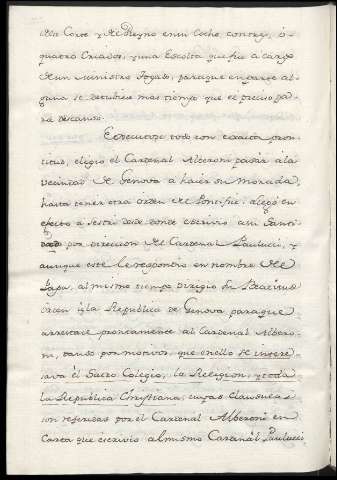 dela Corte y del Reyno en un Coche, con tres, ò
quatro Criados, y una Escolta que fue a cargo
de un Ministro Togado, para que en parte al-
guna se detubiese mas tiempo que el preciso pa-
ra descanso.
Executose todo con exacta pron-
titud, eligio el Cardenal Alberoni pasar à la
vecindad de Genova a hacer su morada,
hasta tener otra orden del Pontifice: alegò en
efecto à Sestri desde donde escrivio a su Santi
dad por direccion del Cardenal Paulucci, y
aunque este le respondio en nombre del
Papa, al mismo tiempo dirigio Su Beatitud
orden à la Republica de Genova para que
arrestase prontamente al Cardenal Albero-
ni, dando por motivos, que en ello se intere-
sava el Sacro Colegio, la Religion, y toda
la Republica Christiana, cuyas Clausulas
son referidas por el Cardenal Alberoni en
Carta que escrivio al mismo Cardenal Paulucci